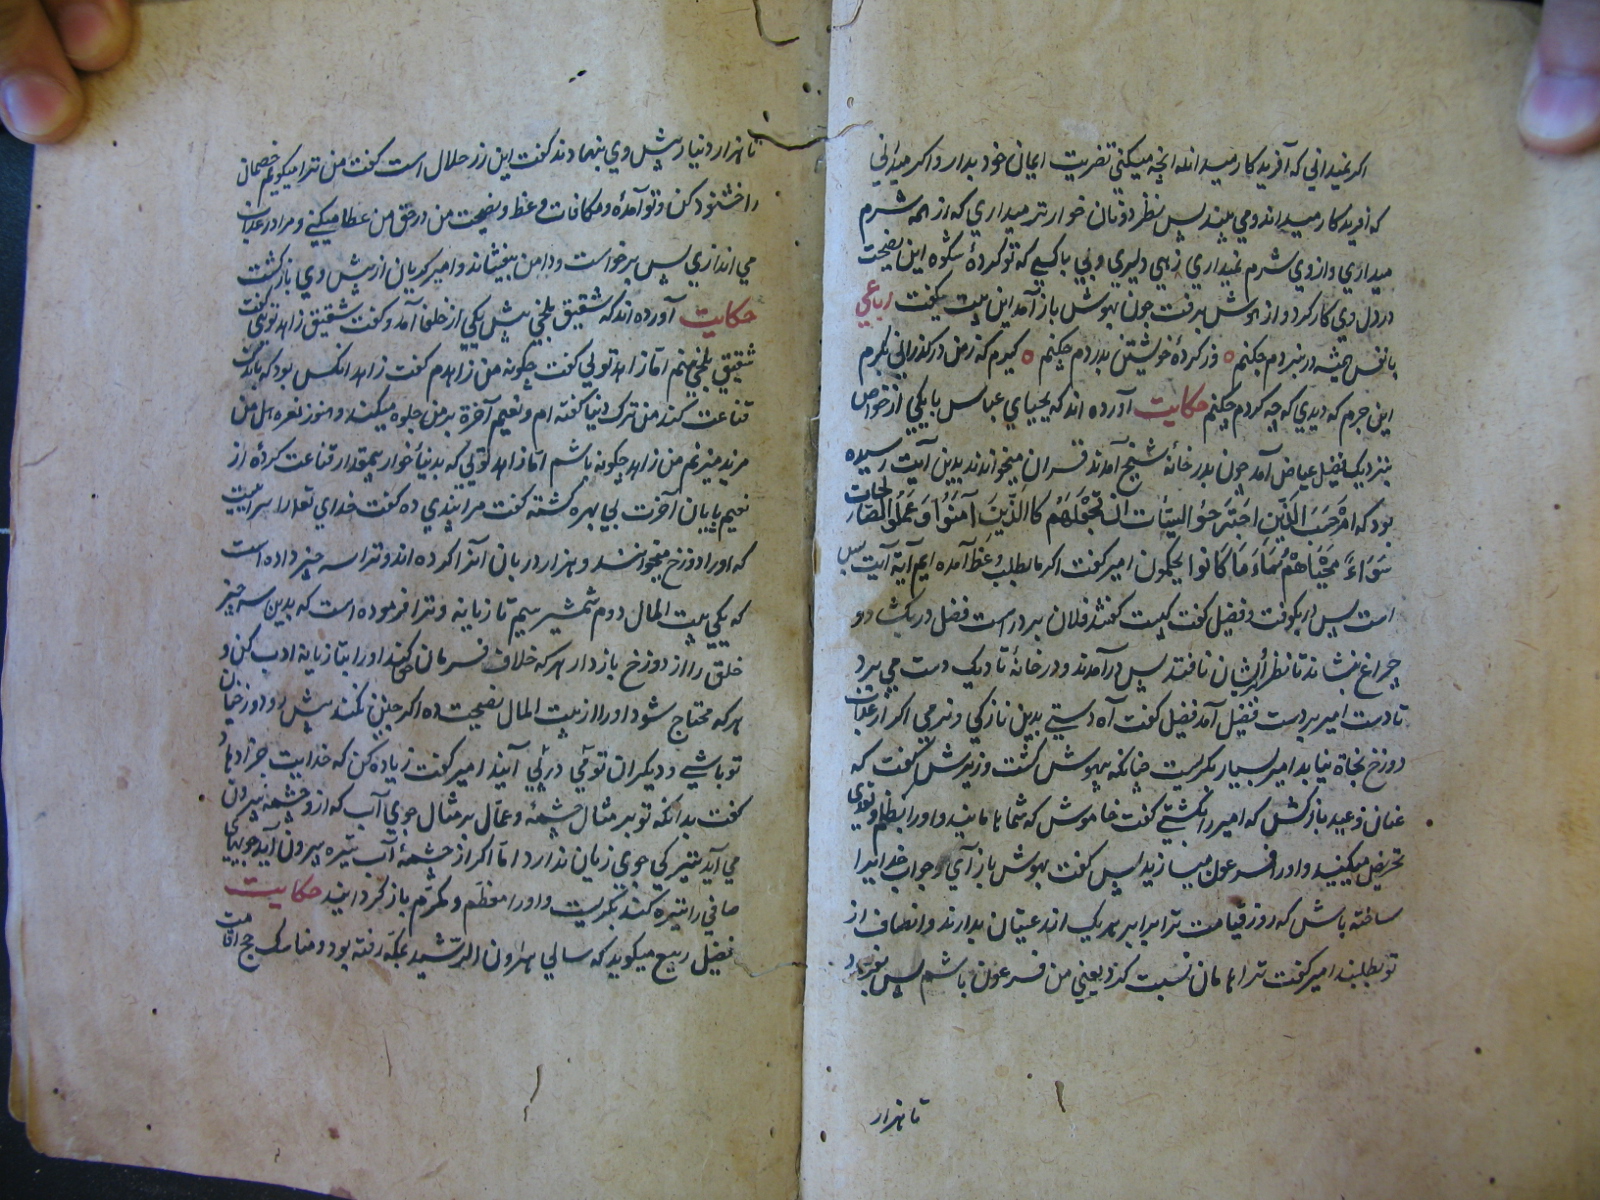 اکر نمیدانی که آفریدکار میداند انچه میکنی تضریت ایمان خود بدار و اکر میدانی
که آفریدکار میداند و می بیند پس نظر دونان خوارتر میداری که از همه شرم
میداری و از وی شرم نمیداری زهی دلیری و بی باکی که تو کردهٔ شکوه این نصیحت
در دل وی کار کرد و از هوش برفت چون بهوش باز آمد این بیت بکفت رباعی
با نفس همیشه در نبردم چکنم ه وز کردهٔ خویشتن بدردم چکنم ه کیرم که ز من درکذرانی بکرم
این جرم که دیدی که چه کردم چکنم حکایت آورده اند که یحیای عباس با یکی از خواص
بنزدیک فضیل عیاض آمد چون بدر خانهٔ شیخ آمدند قران میخواندند بدین آیت رسیده
بود که ام حسب الذین اجترحوا السیئات ان نجعلهم کالذین آمنوا و عملوا الصالحات
سواء محیاهم و مماتهم ساء ما یحکمون امیر کفت اکر ما بطلب وعظ آمده ایم این آیت بس
است پس در بکوفت و فضیل کفت کیست کفتند فلان بر در است فضل در بکشاد و
چراغ بنشاند تا نظر بر ایشان نافتد پس درآمدند و در خانهٔ تاریک دست می برد
تا دست امیر بر دست فضل آمد فضل کفت آه دستی بدین نازکی و نرمی اکر از عذاب
دوزخ نجاة نیابد امیر بسیار بکریست چنانکه بیهوش کشت وزیرش کفت که
عنان وعید بازکش که امیر را کشتی کفت خاموش که شما هامانید و او را بظلم و تعدی
تحریض میکنید و او را فرعون میسازید پس کفت بهوش باز آی و جواب خدایرا
ساخته باش که روز قیامت ترا برابر هر یک از رعیتان بدارند و انصاف از
تو بطلبند امیر کفت ترا هامان نسبت کرد یعنی من فرعون باشم پس بفرمود
تا هزار
تا هزار دینار پیش وی بنهادند کفت این زر حلال است کفت من ترا میکویم خصمان
را خشنود کن و تو آمدهٔ و مکافات وعظ و نصیحت من در حق من عطا میکنی و مرا در عذاب
می اندازی پس برخواست و دامن بیفشاند و امیر کریان از پیش وی بازکشت
حکایت آورده اند که شقیق بلخی پیش یکی از خلفا آمد و کفت شقیق زاهد توئی کفت
شقیق بلخی منم اما زاهد تویی کفت چکونه من زاهدم کفت زاهد انکس بود که باندک
قناعت کند من ترک دنیا کفته ام و نعیم آخرة بر من جلوه میکند و هنوز نعره هل من
مزید میزنم من زاهد چکونه باشم اما زاهد تویی که بدنیا خوار بیمقدار قناعت کردهٔ از
نعیم بی پایان آخرت بی بهره کشته کفت مرا پندی ده کفت خدای تعالی را سراییست
که او را دوزخ میخوانند و هزار دربان آنرا کرده اند و ترا سه چیز داده است
که یکی بیت المال دوم شمشیر سیم تازیانه و ترا فرموده است که بدین سه چیز
خلق را از دوزخ باز دار هر که خلاف فرمان کند او را بتازیانه ادب کن و
هر که محتاج شود او را از بیت المال نصیحت ده اکر چنین نکنند پیش رو دوزخیان
تو باشی و دیکران تو می در پی آیند امیر کفت زیاده کن که خدایت جزا دهاد
کفت بدانکه تو بر مثال چشمهٔ و عمال بر مثال جوی آب که از و چشمه بیرون
می آید تیرکی جوی زیان ندارد اما اکر از چشمهٔ آب تیره بیرون آید جویهای
صافی را تیره کند بکریست و او را معظم و مکرم باز کردانید حکایت
فضل ربیع میکوید که سالی هرون الرشید بمکه رفته بود و مناسک حج اقامت